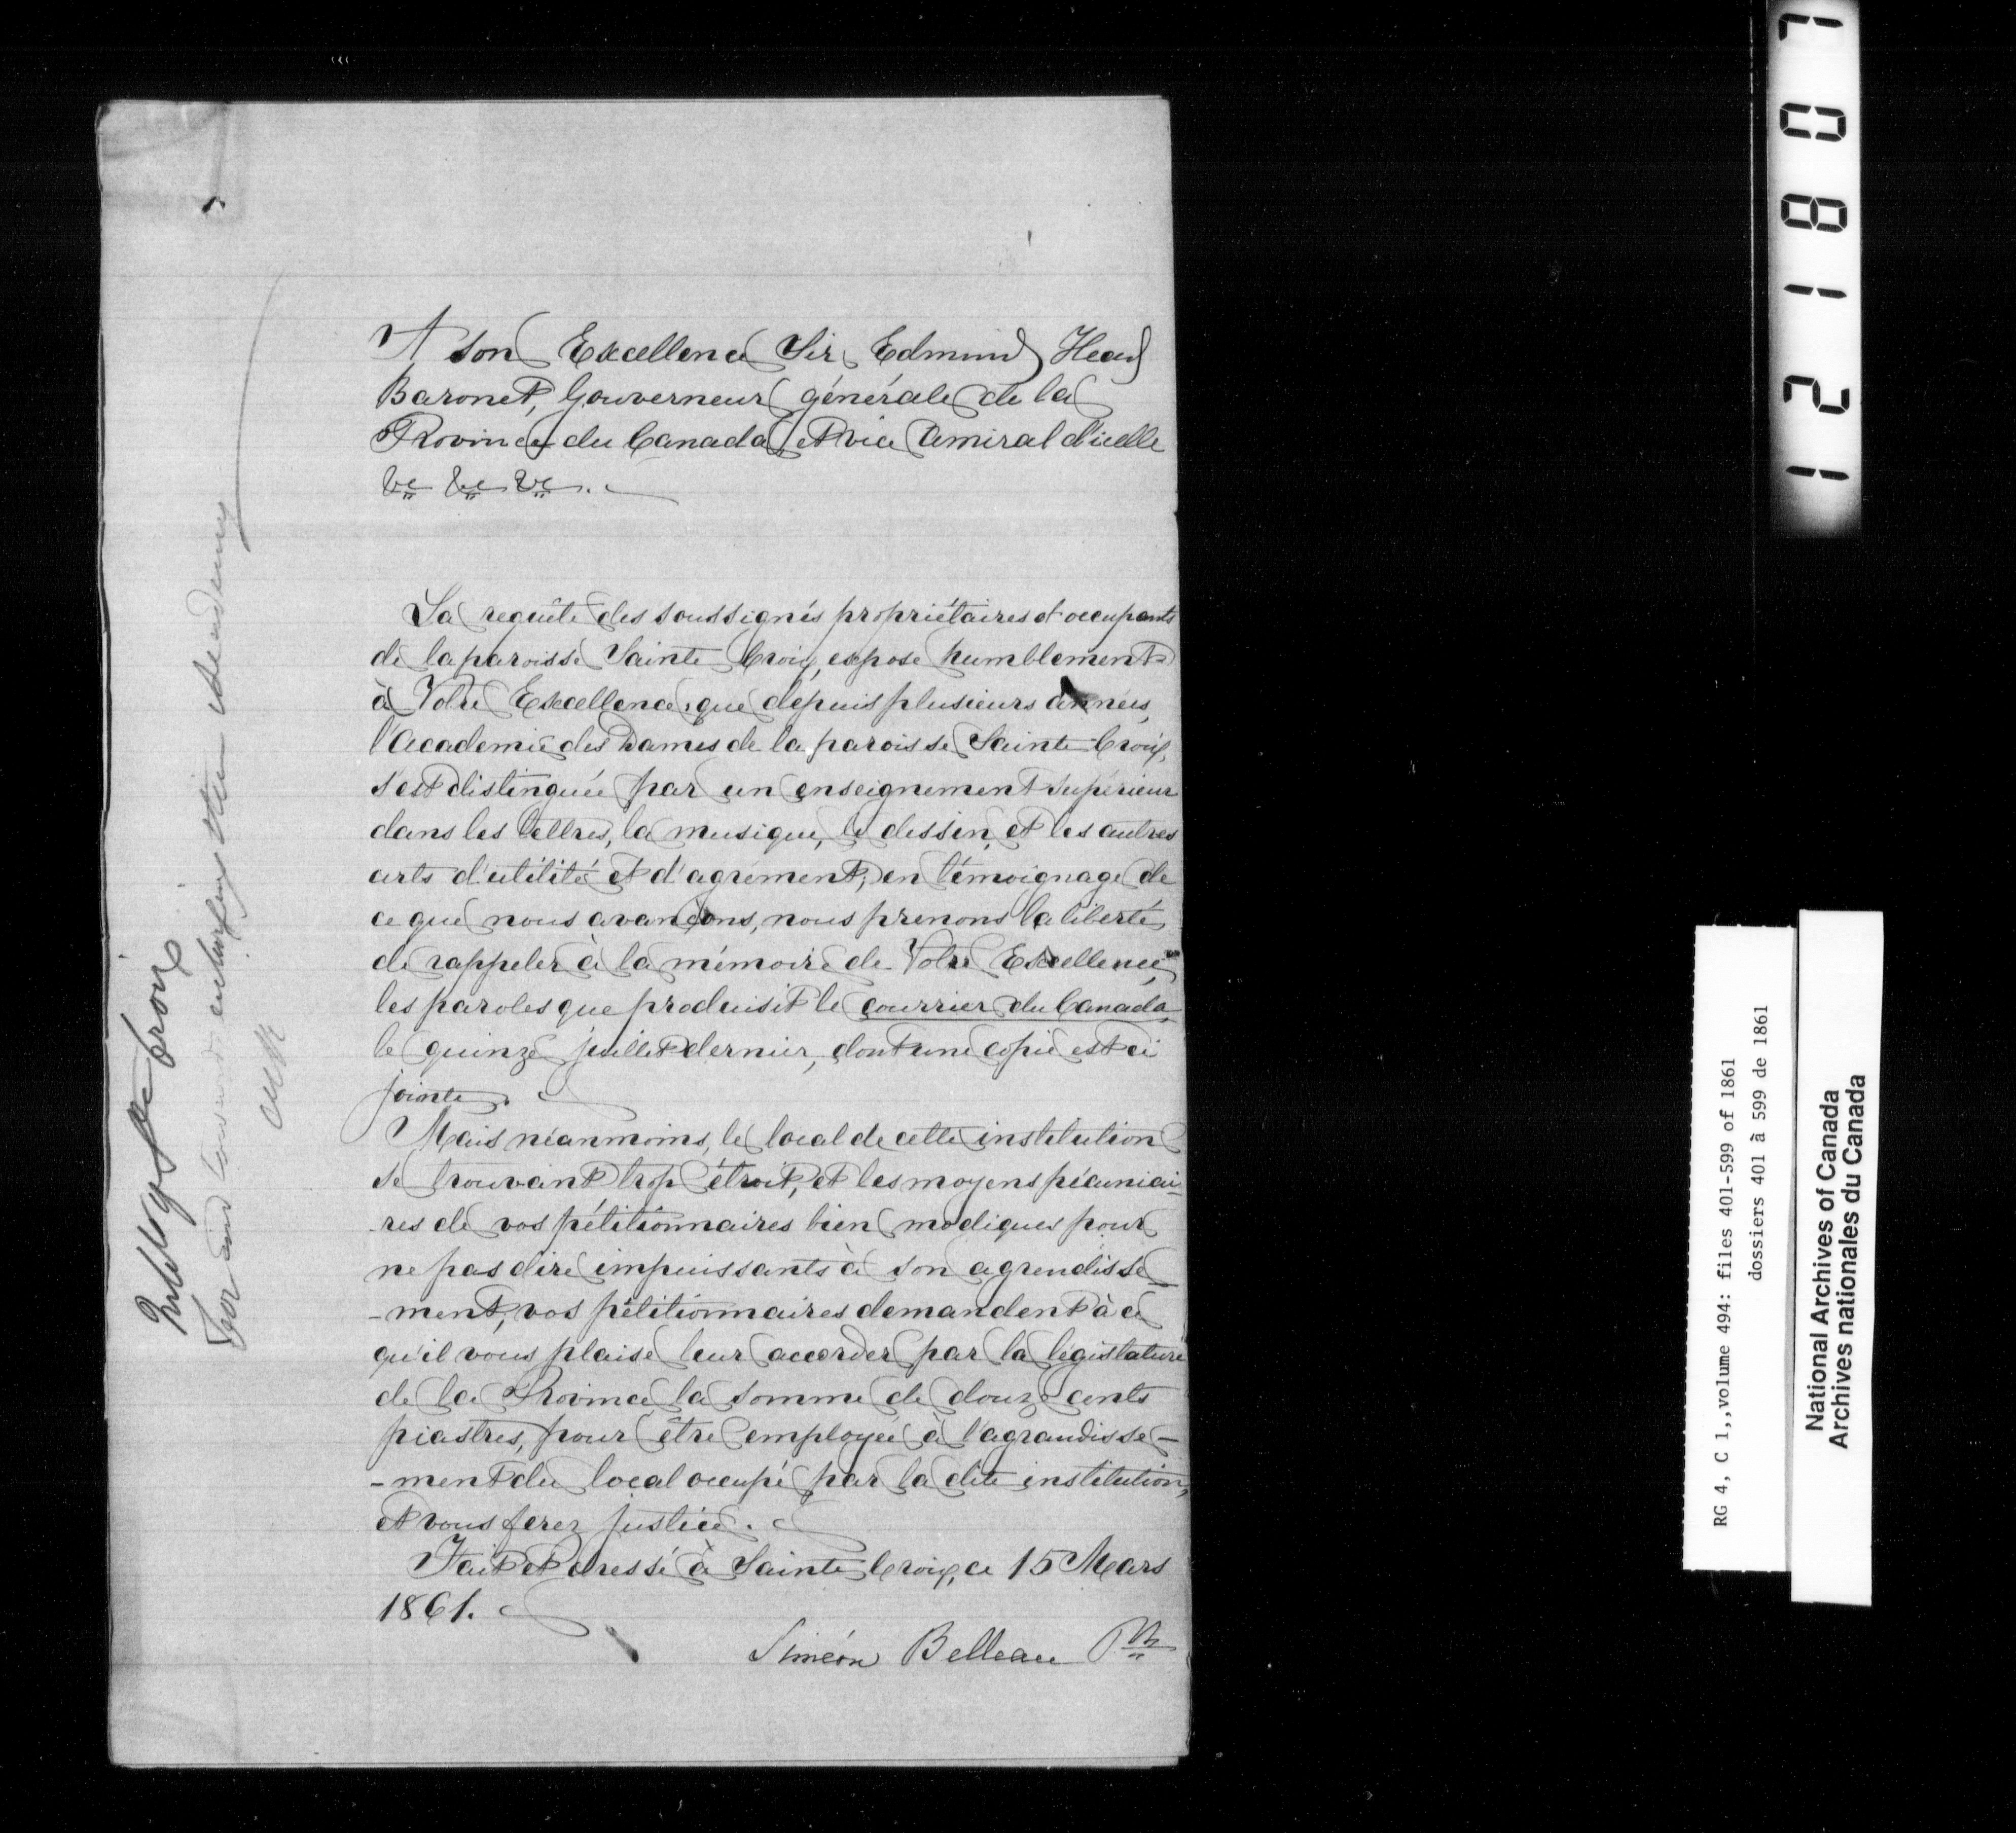 A son Excellence Sir Edmund Head
Baronet, Gouverneur générale de la
Province du Canada, et vice Amiral d'icelle
&c &c &c.
La requête des soussignés propriétaires et occupants
de la paroisse Sainte Croix, expose humblement
à Votre Excellence, que depuis plusieurs années,
l'Academie des Dames de la paroisse Sainte Croix,
s'est distinguée par un enseignement supérieur
dans les lettres, la musique, le dessin, et les autres
arts d'utilité et d'agrément; en témoignage de
ce que nous avançons, nous prenons la liberté
de rappeler à la mémoire de Votre Excellence,
les paroles que produisit le courrier du Canada,
le quinze juillet dernier, dont une copie est ci
jointe.
Mais néanmoins, le local de cette institution
se trouvant trop étroit, et les moyens pécuniai-
-res de vos pétitionnaires bien modiques pour
ne pas dire impuissants à son agrendisse-
-ment, vos pétitionnaires demandent à ce
qu'il vous plaise leur accorder par la législature
de la Province la somme de douze cents
piastres, pour être employée à l'agrandisse-
-ment du local occupé par la dite institution,
et vous ferez justice.
Fait et dressé à Sainte Croix, ce 15 Mars
1861.
Siméon Belleau Ptr
Inhbts of Ste Croix
For aid towards enlarging their Academy
121807
RG 4, C 1,,volume 494: files 401-599 of 1861
dossiers 401 à 599 de 1861
National Archives of Canada
Archives nationales du Canada